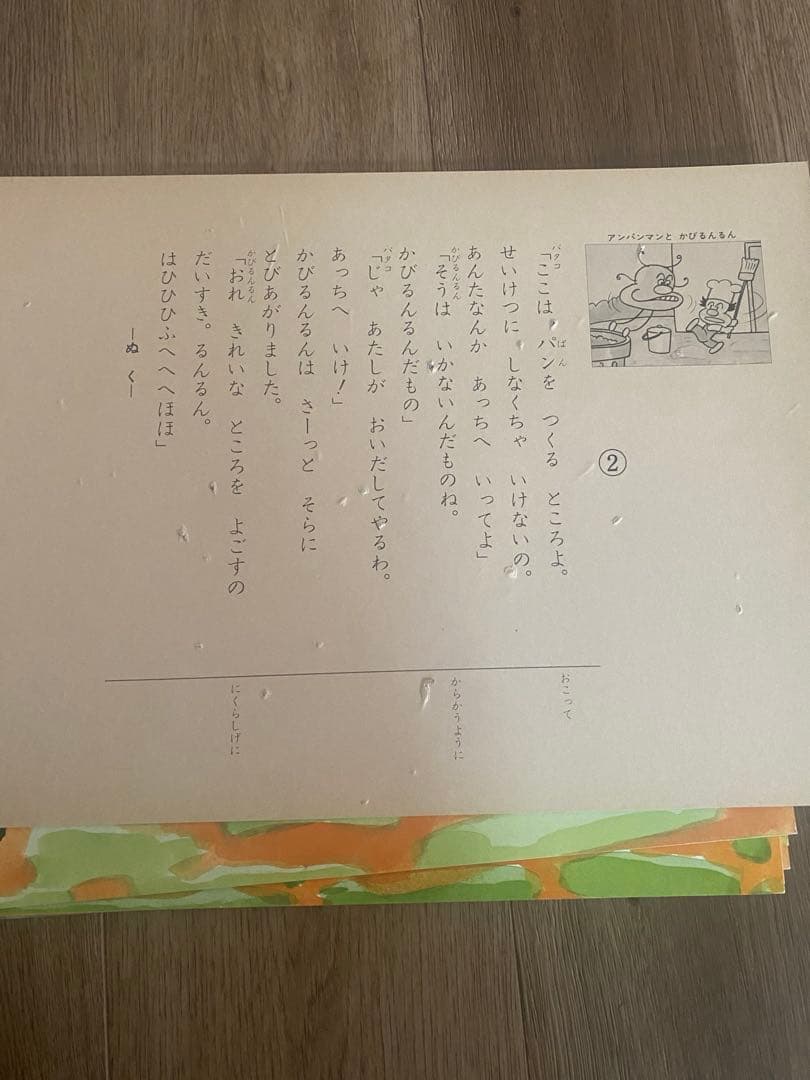 アンパンマンと かびるんるん
②
バタコ
「ここは パンを つくる ところよ。
ぱん
せいけつに しなくちゃ いけないの。
あんたなんか あっちへ いってよ」
かびるんるん
「そうは いかないんだものね。
かびるんるんだもの」
バタコ
「じゃ あたしが おいだしてやるわ。
あっちへ いけ!」
かびるんるんは さーっと そらに
とびあがりました。
かびるんるん
「おれ きれいな ところを よごすの
だいすき。るんるん。
はひひひふへへへほほ」
―ぬ く―
おこって
からかうように
にくらしげに